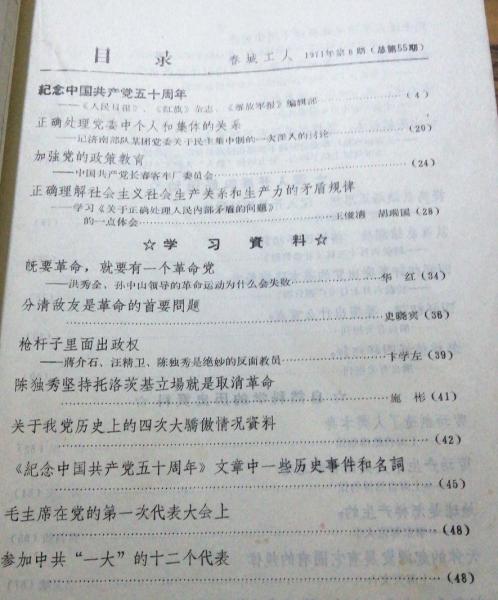 目 录 春城工人 1971年第6期（总第55期）
紀念中国共产党五十周年
——《人民日报》、《红旗》杂志、《解放军报》编辑部（4）
正确处理党委中个人和集体的关系
——记济南部队某团党委关于民主集中制的一次深入的讨论（20）
加强党的政策教育
——中国共产党长春客车厂委员会（24）
正确理解社会主义社会生产关系和生产力的矛盾规律
——学习《关于正确处理人民内部矛盾的问题》
的一点体会 王俊浦 胡瑞国（28）
☆学习資料☆
旣要革命，就要有一个革命党
——洪秀全、孙中山领导的革命运动为什么会失败 华 红（34）
分清敌友是革命的首要問題
史晓宾（36）
枪杆子里面出政权
——蔣介石、汪精卫、陈独秀是绝妙的反面教员 卞学左（39）
陈独秀坚持托洛茨基立場就是取消革命
施 彬（41）
关于我党历史上的四次大驕傲情况資料
（42）
《紀念中国共产党五十周年》文章中一些历史事件和名詞
（45）
毛主席在党的第一次代表大会上
（48）
参加中共“一大”的十二个代表
（48）